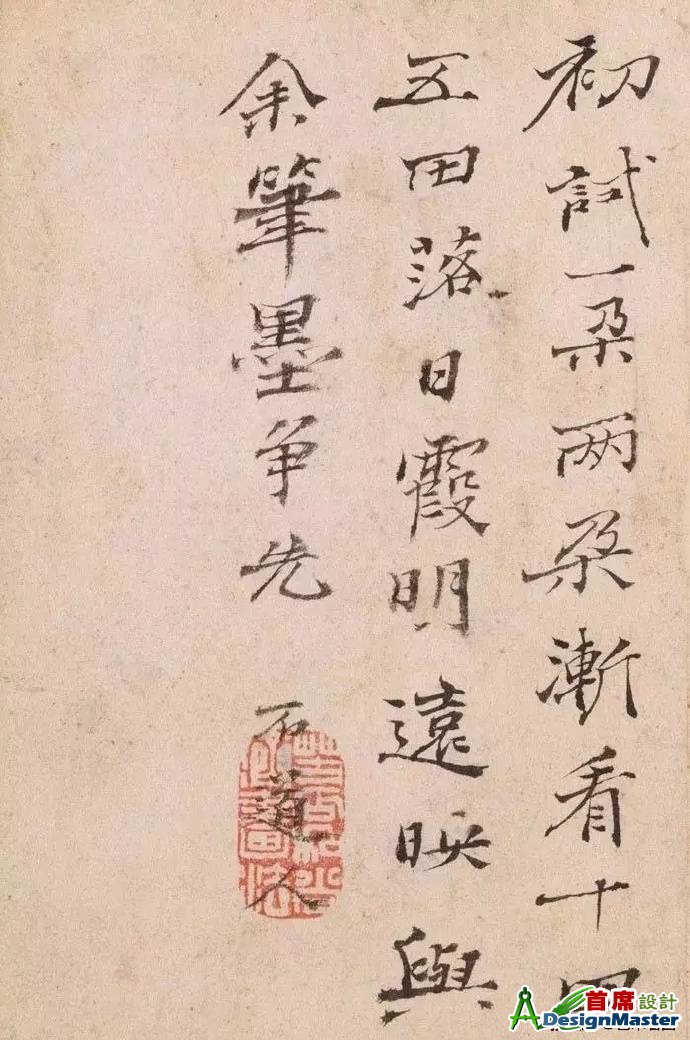 初試一朵两朵漸看十田
五田落日霞明遠映與
余筆墨争先
石道人
首席設計
DesignMaster